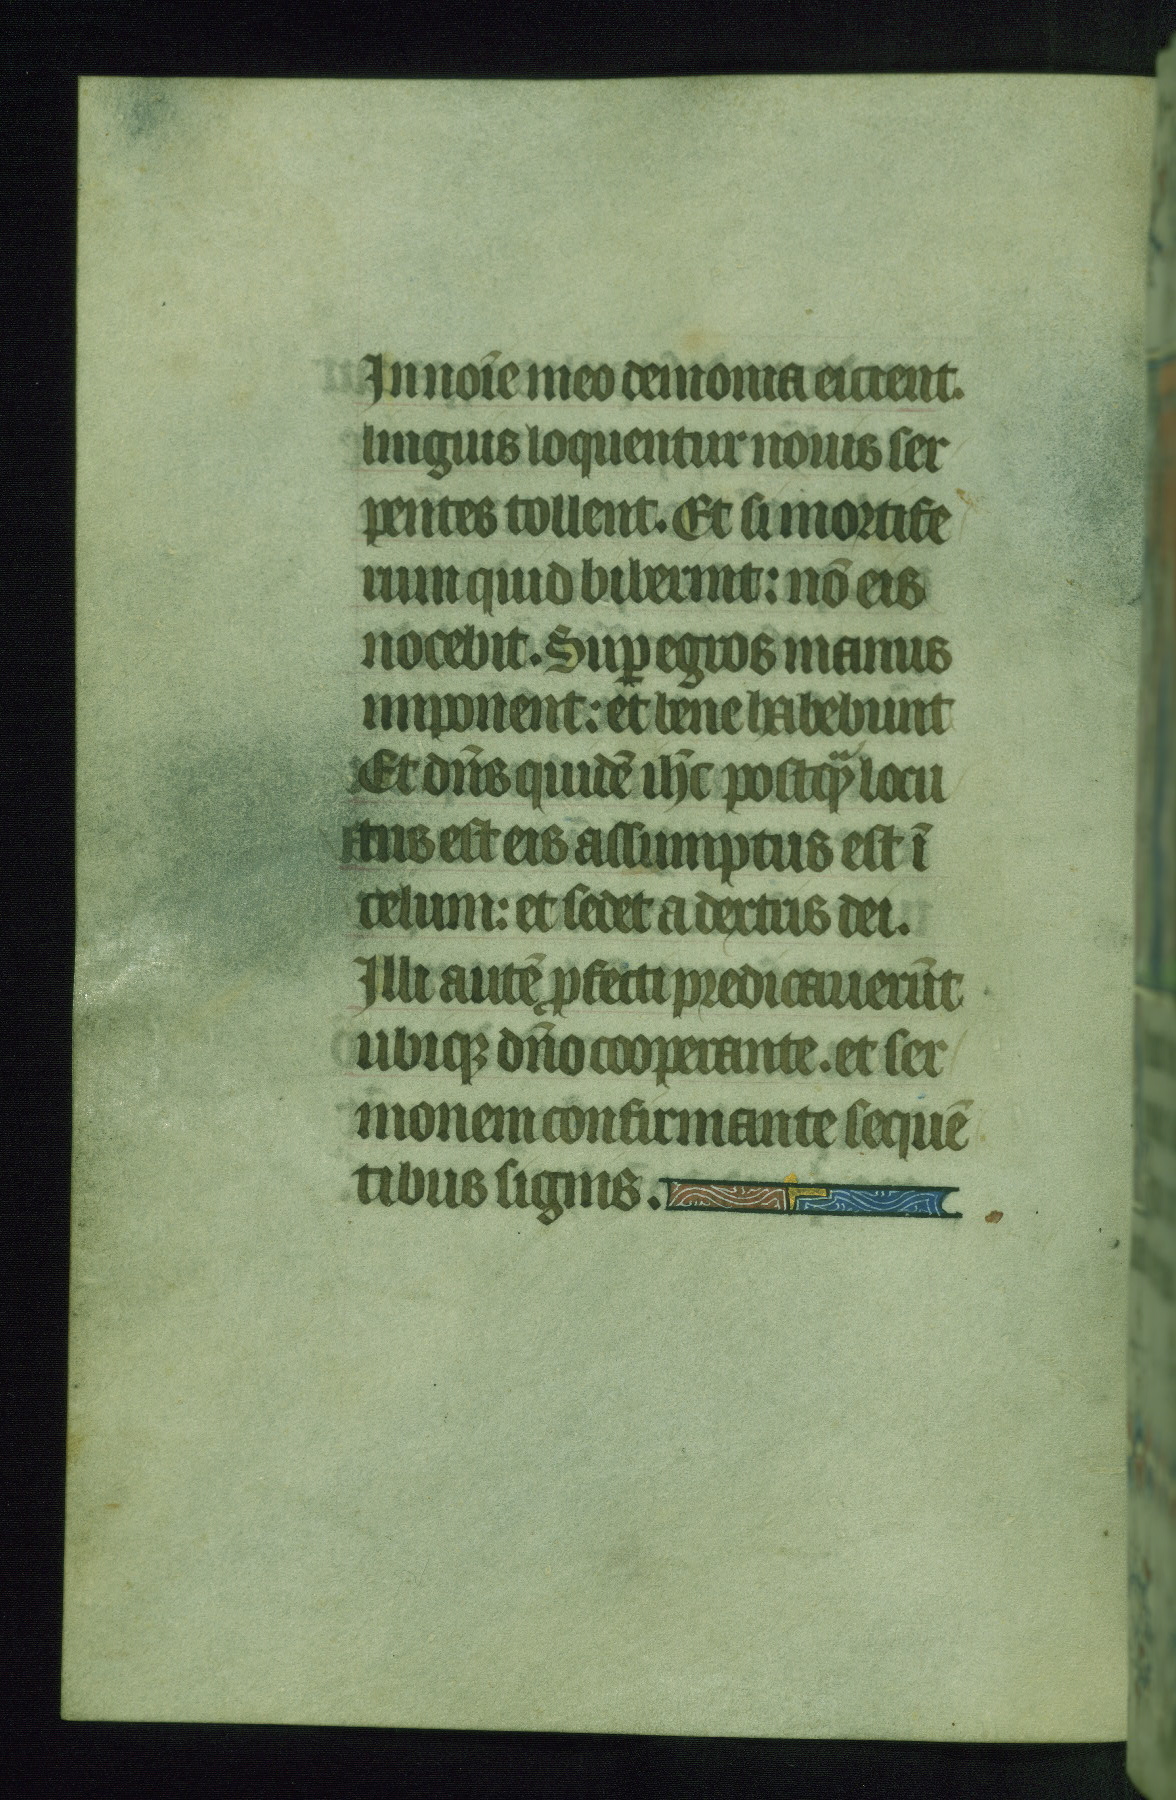 In noīe meo demonia eicient.
linguis loquentur nouis ser
pentes tollent. Et si mortife
rum quid biberint: nō eis
nocebit. Suꝑ egros manus
imponent: et bene habebunt
Et dn̄s quidē ih̄c postqᷓ locu
tus est eis assumptus est ī
celum: et sedet a dextris dei.
Illi autē ꝓfecti predicauerūt
ubiqꝫ dn̄o cooperante. et ser
monem confirmante sequē
tibus signis.